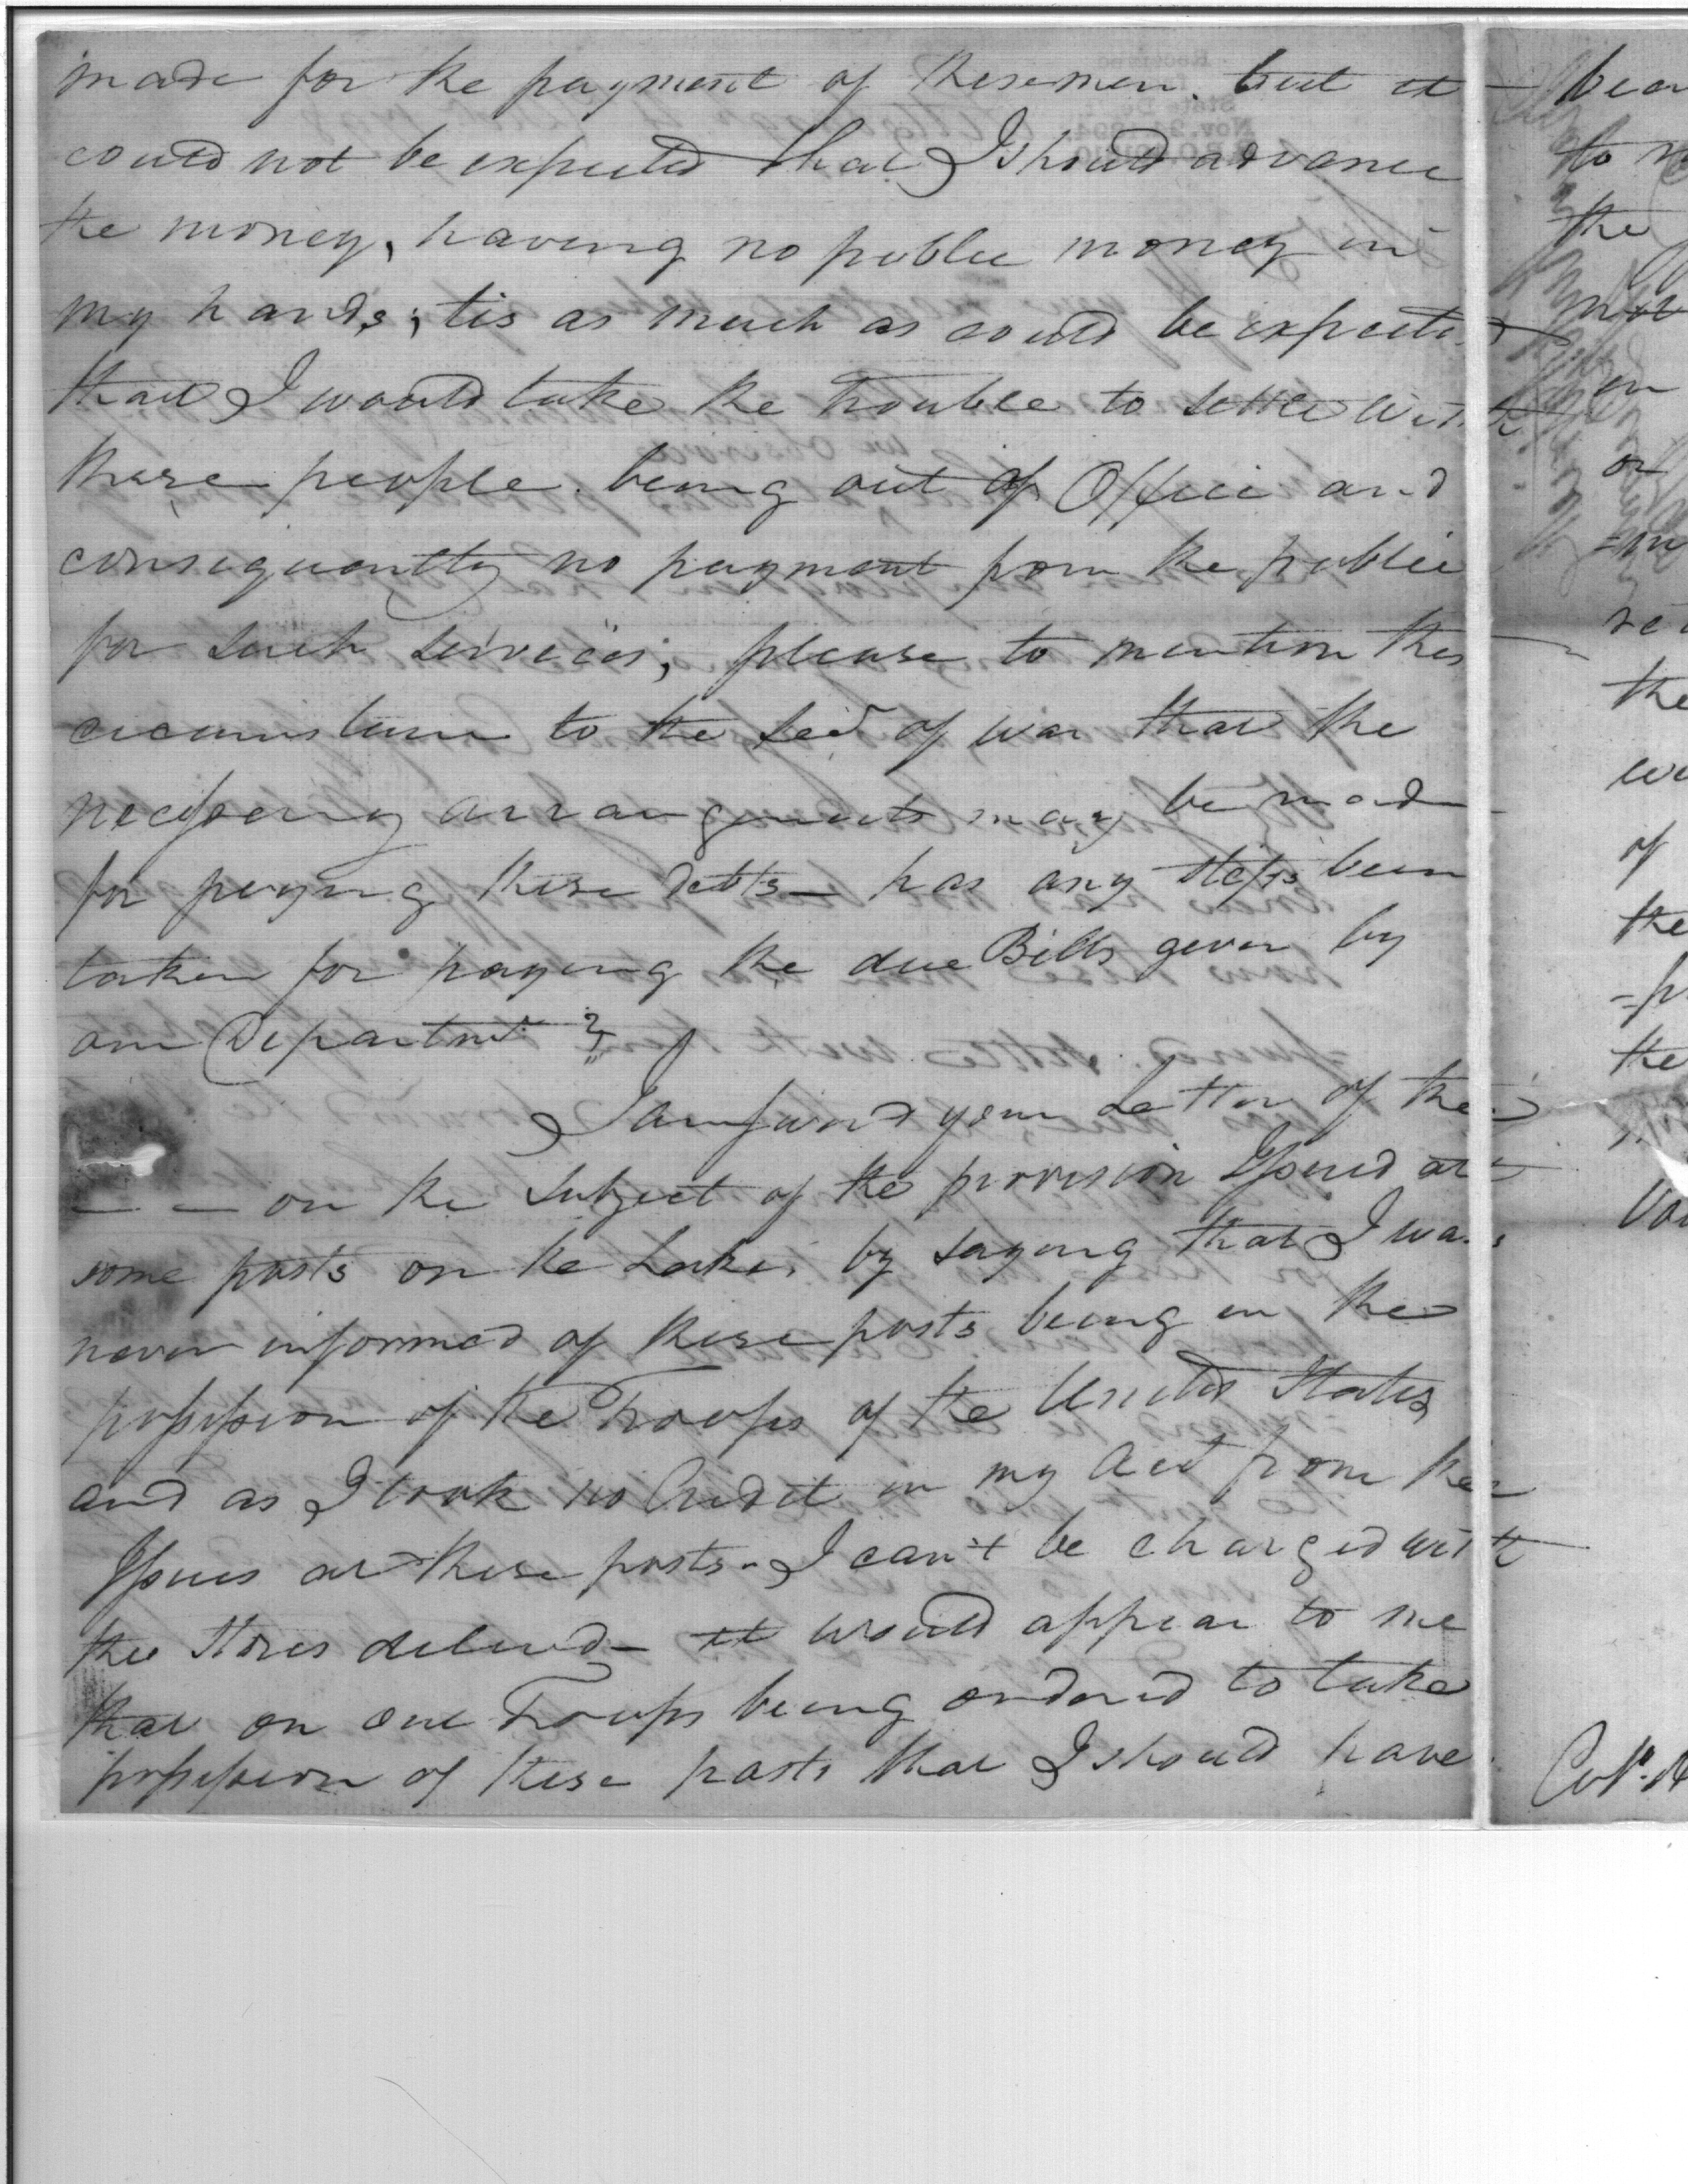 made for the payment of these men. but it
could not be expected that I should advance
the money, having no public money in
my hands; tis as much as could be expected
that I would take the trouble to settle with
these people. being out of Office and
consequently no payment from the public
for such services; please to mention this
circumstance to the Sec'd of war that the
necessary arrangements may be made
for paying these debts — has any steps been
taken for paying the due Bills given by
our Department?
I answered your Letter of the
— — on the subject of the provision Issued at
some posts on the Lake, by saying that I was
never informed of these posts being in the
possession of the Troops of the United States
and as I took no Credit in my Acct from the
Issues at these posts - I can't be charged with
the Stores delived — it would appear to me
that on our Troops being ordered to take
possession of these posts that I should have